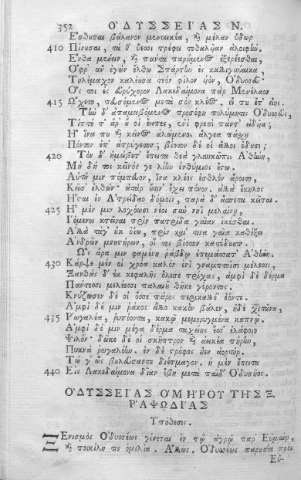 352 ὈΔΥΣΣΕΙΑΣ Ν.
Ἔσθουσαι βάλανον μενοεικέα, ἢ μέλαν ὕδωρ
410 Πίνουσαι, τά θ' ὕεσσι τρέφει τεθαλυῖαν ἀλοιφήν.
Ἔνθα μένειν, καὶ πάντα παρήμενος ἐξερέεσθαι,
Ὄφρ' ἂν ἐγὼν ἔλθω Σπάρτην ἐς καλλιγύναικα,
Τηλέμαχον καλέουσα τεὸν φίλον υἱὸν, Ὀδυσσεῦ·
Ὅς τοι ἐς εὐρύχορον Λακεδαίμονα πὰρ Μενέλαον
415 ᾬχετο, πευσόμενος μετὰ σὸν κλέος, εἴ που ἔτ' εἴης.
Τὴν δ' ἀπαμειβόμενος προσέφη πολύμητις Ὀδυσσεύς·
Τίπτε τ' ἄρ' οὔ οἱ ἔειπες, ἐνὶ φρεσὶ πάντ' εἰδυῖα;
Ἦ ἵνα που καὶ κεῖνος ἀλώμενος ἄλγεα πάσχῃ
Πόντον ἐπ' ἀτρύγετον, βίοτον δέ οἱ ἄλλοι ἔδουσι;
420 Τὸν δ' ἠμείβετ' ἔπειτα θεὰ γλαυκῶπις Ἀθήνη,
Μὴ δή τοι κεῖνός γε λίην ἐνθύμιος ἔστω.
Αὐτή μιν πόμπευον, ἵνα κλέος ἐσθλὸν ἄροιτο,
Κεῖσ' ἐλθών· ἀτὰρ οὔτιν' ἔχει πόνον, ἀλλὰ ἕκηλος
Ἧσται ἐν Ἀτρείδαο δόμοις, παρὰ δ' ἄσπετα κεῖται.
425 Ἦ μέν μιν λοχόωσι νέοι σὺν νηῒ μελαίνῃ,
Ἱέμενοι κτεῖναι πρὶν πατρίδα γαῖαν ἱκέσθαι.
Ἀλλὰ τάγ' οὐκ ὀΐω, πρὶν καί τινα γαῖα καθέξει
Ἀνδρῶν μνηστήρων, οἵ τοι βίοτον κατέδουσιν.
Ὣς ἄρα μιν φαμένη ῥάβδῳ ἐπεμάσσατ' Ἀθήνη.
430 Κάρψε μέν οἱ χρόα καλὸν ἐνὶ γναμπτοῖσι μέλεσσι,
Ξανθὰς δ' ἐκ κεφαλῆς ὄλεσε τρίχας, ἀμφὶ δὲ δέρμα
Πάντεσσι μελέεσσι παλαιοῦ θῆκε γέροντος.
Κνύζωσεν δέ οἱ ὄσσε πάρος περικαλλέ' ἐόντε.
Ἀμφὶ δέ μιν ῥάκος ἄλλο κακὸν βάλεν, ἠδὲ χιτῶνα,
435 Ῥωγαλέα, ῥυπόωντα, κακῷ μεμορυγμένα καπνῷ.
Ἀμφὶ δέ μιν μέγα δέρμα ταχείης ἕσσ' ἐλάφοιο
Ψιλόν· δῶκε δέ οἱ σκῆπτρον καὶ ἀεικέα πήρην,
Πυκνὰ ῥωγαλέην. ἐν δὲ στρόφος ἦεν ἀορτήρ.
Τώ γ' ὣς βουλεύσαντε διέτμαγον. ἡ μὲν ἔπειτα
440 Εἰς Λακεδαίμονα δῖαν ἔβη μετὰ παῖδ' Ὀδυσῆος.
ὈΔΥΣΣΕΙΑΣ ὉΜΗΡΟΥ ΤΗΣ Ξ
ῬΑΨΩΔΙΑΣ
Ὑπόθεσις.
Ξενισμὸς Ὀδυσσέως γίνεται ἐν τῷ ἀγρῷ παρ' Εὐμαίῳ,
καὶ ποικίλη τις ὁμιλία. Ἄλλως. Ὀδυσσέως παρουσία πρὸς
Εὔ-